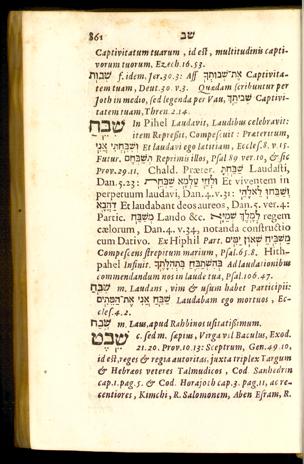 861 שב
Captivitatum tuarum, id est, multitudinis capti-
vorum tuorum, Ezech. 16. 53.
שבות f. idem, Jer. 30. 3: Ass אֶת־שְׁבוּתְךָ Captivita-
tem tuam, Deut. 30. v. 3. Quædam scribuntur per
Joth in medio, sed legenda per Vau, שְׁבִיתֵךְ Captivi-
tatem tuam, Thren. 2. 14.
שבח In Pihel Laudavit, Laudibus celebravit:
item Repressit, Compescuit: Præteritum,
וְשִׁבַּחְתִּי אֲנִי Et laudavi ego lætitiam, Eccles. 8. v. 15.
Futur. Reprimis illos, Psal 89 ver. 10, & sic
Prov. 29. 11. Chald. Præter. Laudasti,
Dan. 5. 23: Et viventem in
perpetuum laudavi, Dan. 4. v. 31:
Et laudabant deos aureos, Dan. 5. ver. 4:
Partic. מְשַׁבַּח Lando &c. לְמֶלֶךְ שְׁמַיָּא regem
cælorum, Dan. 4. v. 34, notanda constructio
cum Dativo. Ex Hiphil Part. מַשְׁבִּיחַ שְׁאוֹן יַמִּים
Compescens strepitum marium, Psal. 65. 8. Hith-
pahel Infinit. בְּתְהִלָּתֶךָ Ad laudationibus
commendandum nos in laude tua, Psal. 106. 47.
שבח m. Laudans, vim & usum habet Participii:
שַׁבֵּחַ אֲנִי אֶת־הַמֵּתִים Laudabam ego mortuos, Ec-
cles. 4. 2.
שבח m. Laus, apud Rabbinos usitatissimum.
שבט c. sed m. sæpius, Virga vel Baculus, Exod.
21. 20. Prov. 10. 13: Sceptrum, Gen. 49. 10,
id est, reges & regia autoritas, juxta triplex Targum
& Hebræos veteres Talmudicos, Cod Sanhedrin
cap. 1. pag. 5. & Cod. Horajoth cap. 3. pag. 11, ac re-
centiores, Kimchi, R. Salomonem, Aben Esram, R.